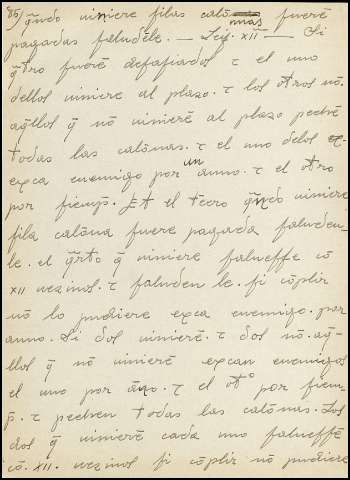 85) q̃ndo viniere fila calõnas fuerẽ
pagadas ſaludẽle. — Ley. XIIᵃ — Si
q̃tro fuerẽ deſafiados τ el uno
dellos viniere al plazo. τ los otros nõ.
aq̃llos q̃ nõ vinierẽ al plazo pechẽ
todas las calõnas. τ el uno delos
exca enemigo por un anno. τ el otro
por ſiemp̃. Et el tc̃ero q̃ndo viniere
ſila calõna fuere pagada ſaluden-
le. el q̃rto q̃ viniere ſalueſſe cõ
XII vezinos. τ ſaluden le. ſi cõplir
nõ lo pudiere exca enemigo. por
anno. Si dos vinierẽ. τ dos nõ. aq̃-
llos q̃ nõ vinierẽ excan enemigos
el uno por año. τ el otº por ſiem-
p̃. τ pechen todas las calõnas. Los
dos q̃ vinierẽ cada uno ſalueſſẽ
cõ. XII. vezinos ſi cõplir nõ pudiere